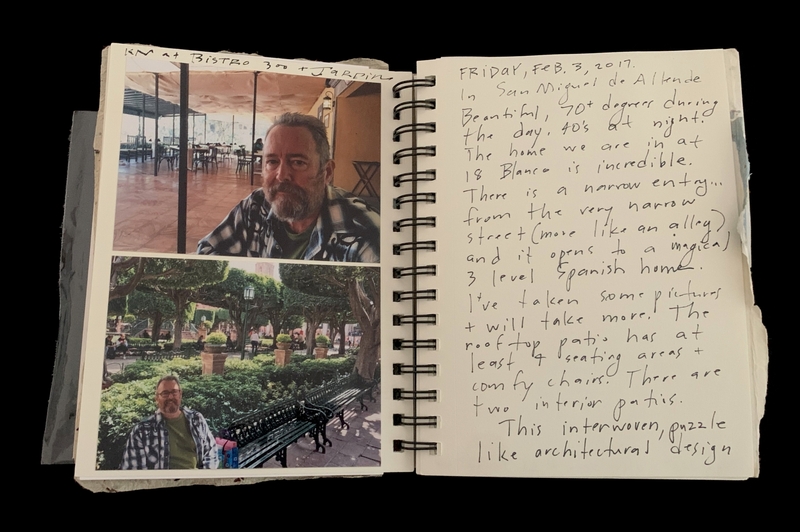 KM at Bistro 300 + Jardin
FRIDAY, FEB. 3, 2017.
In San Miguel de Allende
Beautiful, 70+ degrees during
the day, 40's at night!
The home we are in at
18 Blanco is incredible.
There is a narrow entry...
from the very narrow
street (more like an alley)
and it opens to a magical
3 level Spanish home.
I've taken some pictures
+ will take more! The
rooftop patio has at
least 4 seating areas +
comfy chairs. There are
two interior patios.
This interwoven, puzzle
like architectural design